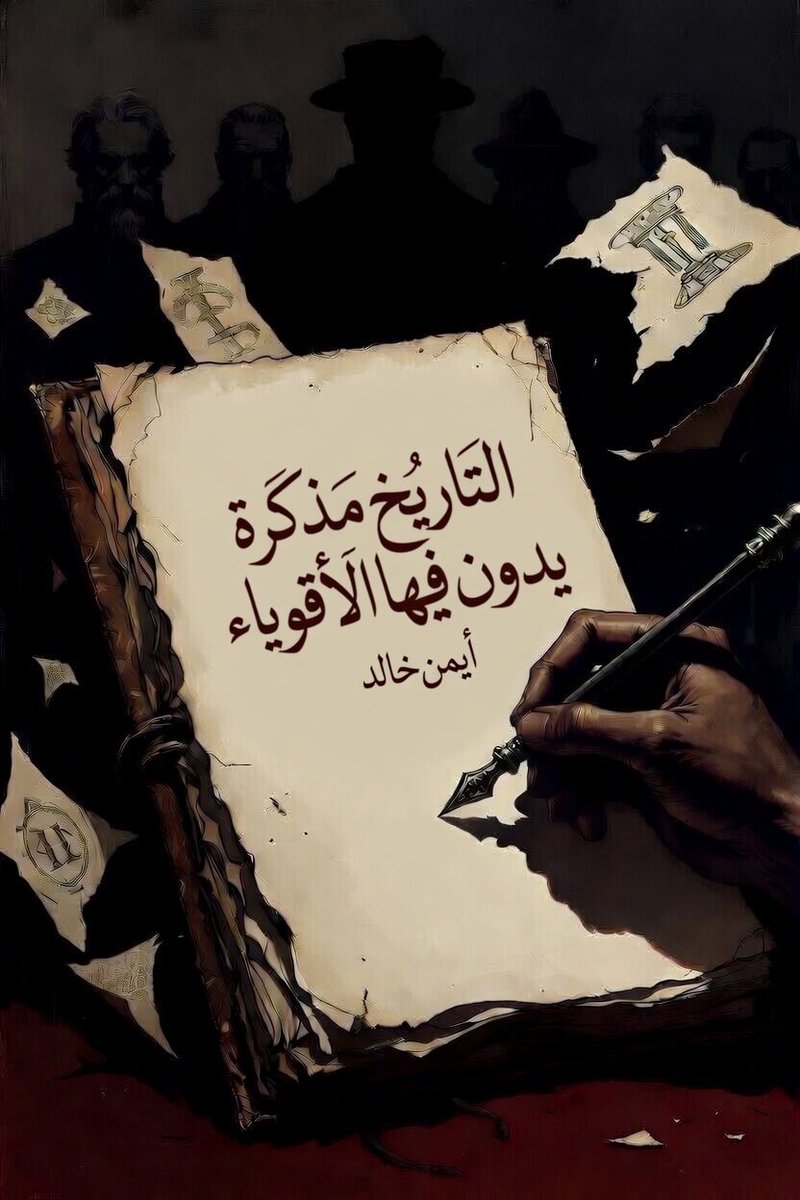 التَاريُخ مَذكَرة
يدون فيها الَأقوياء
أيمن خالد